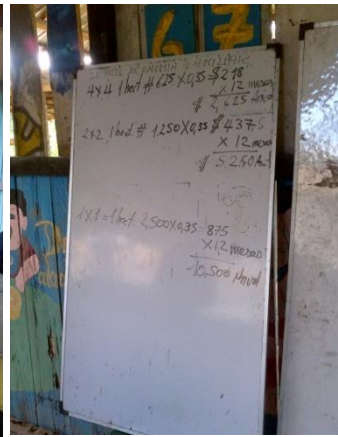 67
4x4 1 hect # 625 X 0,35 = $ 218
X 12 meses
$ 2,625 Anual
2x2 1 hect. # 1,250 X 0,35 $ 437,5
X 12 meses
$ 5,250 Anual
1x1 = 1 hect. 2,500 X 0,35 = 875
X 12 meses
10,500 Anual